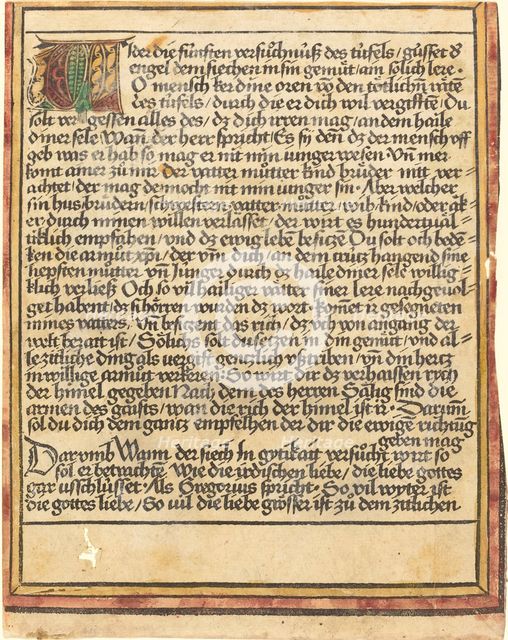 Wider die fünfften versůchnuß des tüfels / güsset d᷑
engel dem siechen in sin gemüt / ain sölich lere ·
O mensch ker dine oren võ den tötlichñ räte
des tüfels / durch die er dich wil vergifftẽ / Du
solt vergessen alles des / dz dich irren mag / an dem haile
diner sele Wañ der herr spricht / Es sÿ deñ dz der mensch vff
geb was er hab so mag er nit min iunger wesen · Vñ mer
komt ainer zu mir der vatter můtter kind brůder nitt ver=
achtet / der mag dennocht nit min iunger sin · Aber welcher
sin hus / brüdern / schwestern / vatter / můtter / wib / kind / oder äk
er durch minen willen verlasset / der wirt es hundertual=
tiklich empfahen / vnd dz ewig lebẽ besiczẽ Du solt och bedẽ=
ken die armůt xp̃i / der vm̃ dich / an dem crütz hangend sine
liepsten můtter vñ Junger / durch dz haile diner sele willig=
klich verließ Och so vil hailiger vätter siner lere nachgeuol=
get habent / dz si hörren wurden dz wort · kom̃et ir gesegneten
mines vatters · Vñ besiczent das rich / dz vch von angang der
welt berait ist / Sölichs solt du seczen in din gemüt / vnd al=
le zitliche ding als vergift genczlich vßtriben / vñ din hertz
in willige armůt verkeren · So wirt dir dz verhaissen rych
der himel gegeben Nach dem des herren Sälig sind die
armen des gaists / wan die rich der himel ist ir · Darum
solt du dich dem gantz empfelhen der dir die ewige richtũg
geben mag
Darvmb Wann der siech In gytikait versůcht wirt so
sol er betrachtẽ Wie die irdischen liebe / die liebe gottes
gar vsschlüsset · Als Gregorius spricht · So vil wyter ist
die gottes liebe / So vil die liebe grösser ist zu dem zitlichen
Heritage
Heritage